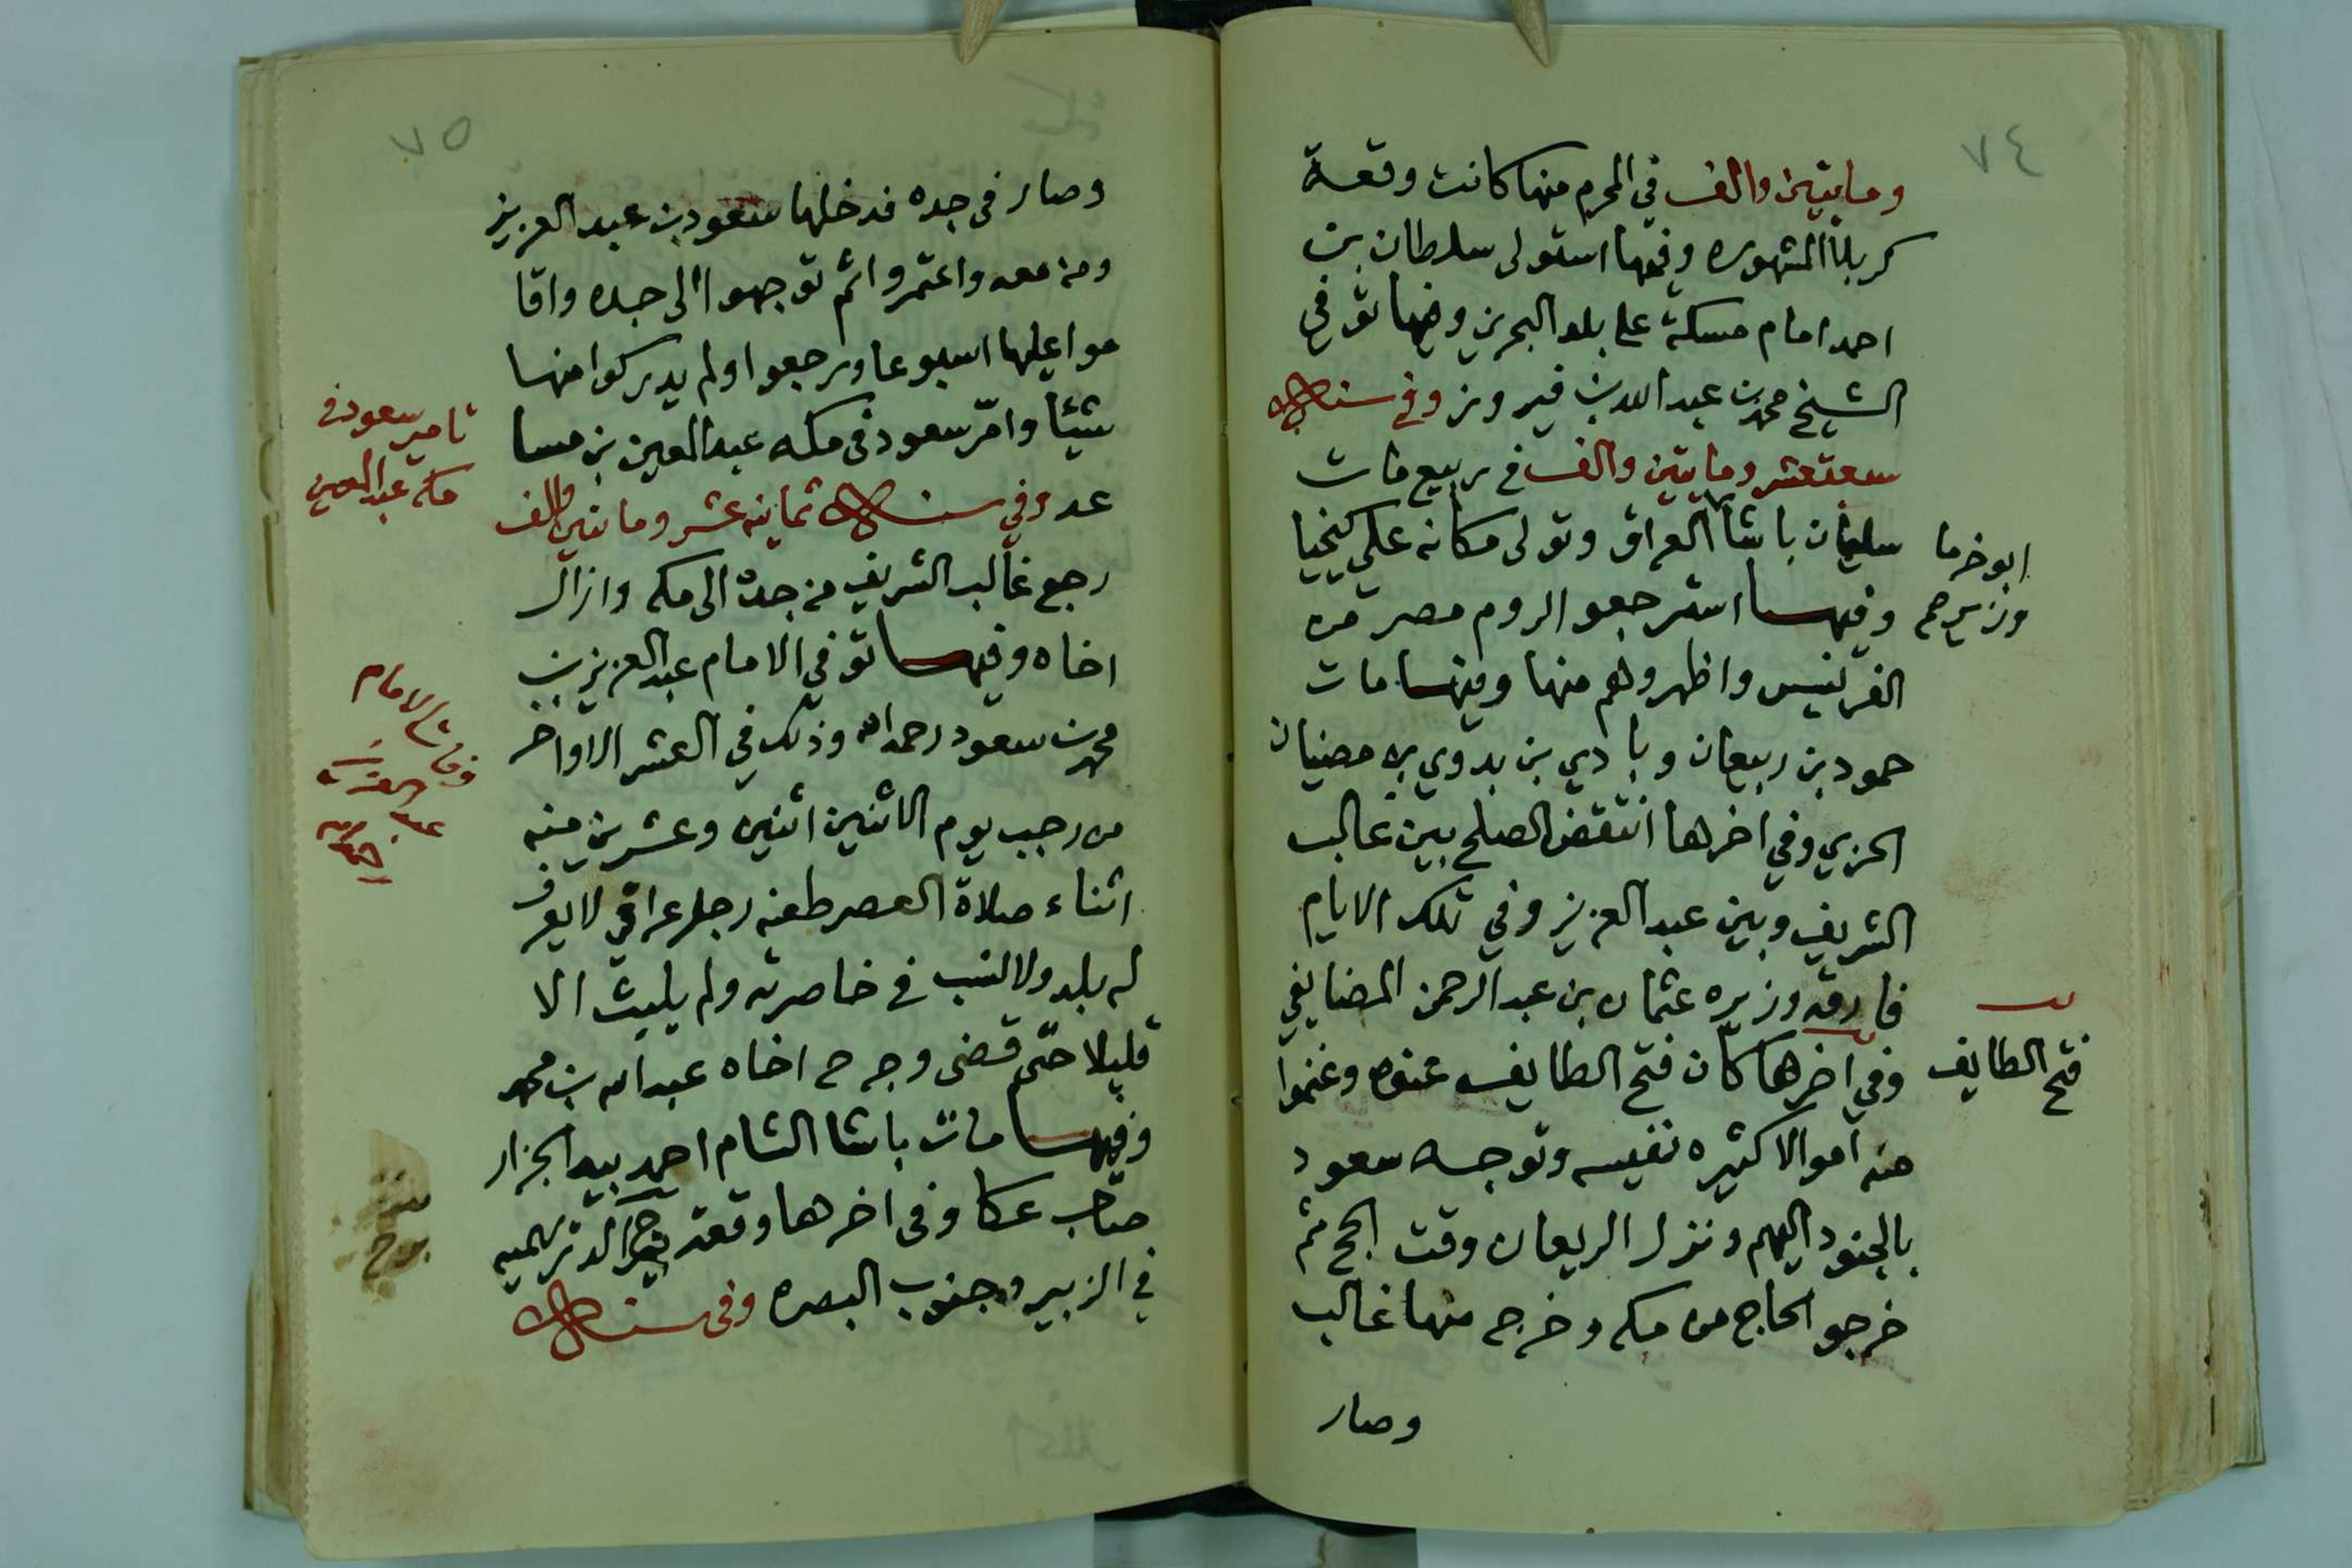 ٧٤
ومايتين والف في المحرم منها كانت وقعة
كربلا المشهوره وفيها استولى سلطان بن
احمد امام مسكة على بلد البحرين وفيها توفي
الشيخ محمد بن عبدالله بن فيروز وفي سنة
سبعة عشر ومايتين والف في ربيع مات
سليمان باشا العراق وتولى مكانه علي كيخيا
ابو خرما
وزيرهم
وفيها استرجعوا الروم مصر من
الفرنيس واظهروهم منها وفيها مات
حمود بن ربيعان وبادي بن بدوي بن مضيان
الحربي وفي اخرها انتقض الصلح بين غالب
الشريف وبين عبد العزيز وفي تلك الايام
فارقه وزيره عثمان بن عبد الرحمن المضايفي
وفي اخرها كان فتح الطايف عنوه وغنموا
فتح الطايف
منه اموالا كثيره نفيسه وتوجه سعود
بالجنود اليهم ونزل الريعان وقت الحج ثم
خرجو الحاج من مكه وخرج منها غالب
وصار
٧٥
وصار في جده فدخلها سعود بن عبد العزيز
ومن معه واعتمروا ثم توجهوا الى جده واقا
موا عليها اسبوعا ورجعوا ولم يدركوا منها
شيئا وامّر سعود في مكه عبد المعين بن مسا
تامير سعود في
مكه عبد المعين
عد وفي سنة ثمانية عشر ومايتين والف
رجع غالب الشريف من جدة الى مكه وازال
اخاه وفيها توفي الامام عبد العزيز بن
وفات الامام
محمد بن سعود رحمه الله وذلك في العشر الاواخر
من رجب يوم الاثنين اثنين وعشرين منه
اثناء صلاة العصر طعنه رجل عراقي لا يعرف
له بلد ولا نسب في خاصرته ولم يلبث الا
قليلا حتى قضى وجرح اخاه عبد الله بن محمد
وفيها مات باشا الشام احمد بيه الجزار
صاحب عكا وفي اخرها وقعة الدريهميه
في الزبير وجنوب البصره وفي سنة